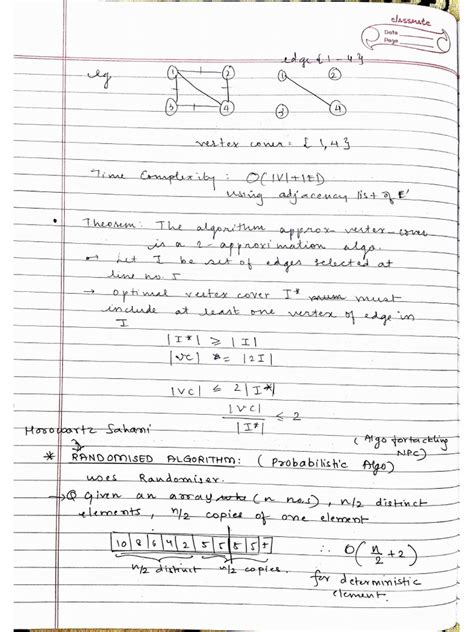 classmate
Date
Page
edge {1-4}
eg 1 2 1 2
3 4 3 4
vertex cover = {1,4}
Time Complexity: O(|V|+|E|)
using adjacency list of E'
• Theorem: The algorithm approx-vertex-cover
is a 2-approximation algo.
→ Let I be set of edges selected at
line no. 5
→ optimal vertex cover I* must
include at least one vertex of edge in
I
|I*| ≥ |I|
|VC| = |2I|
|VC| ≤ 2|I*|
|VC| / |I*| ≤ 2
Horowartz Sahani
(Algo for tackling
NPC)
* RANDOMISED ALGORITHM: (Probabilistic Algo)
uses Randomiser.
→ Q Given an array (n nos), n/2 distinct
elements, n/2 copies of one element
10 8 6 4 2 5 5 5 5 5
∴ O(n/2 + 2)
n/2 distinct n/2 copies.
for deterministic
element.